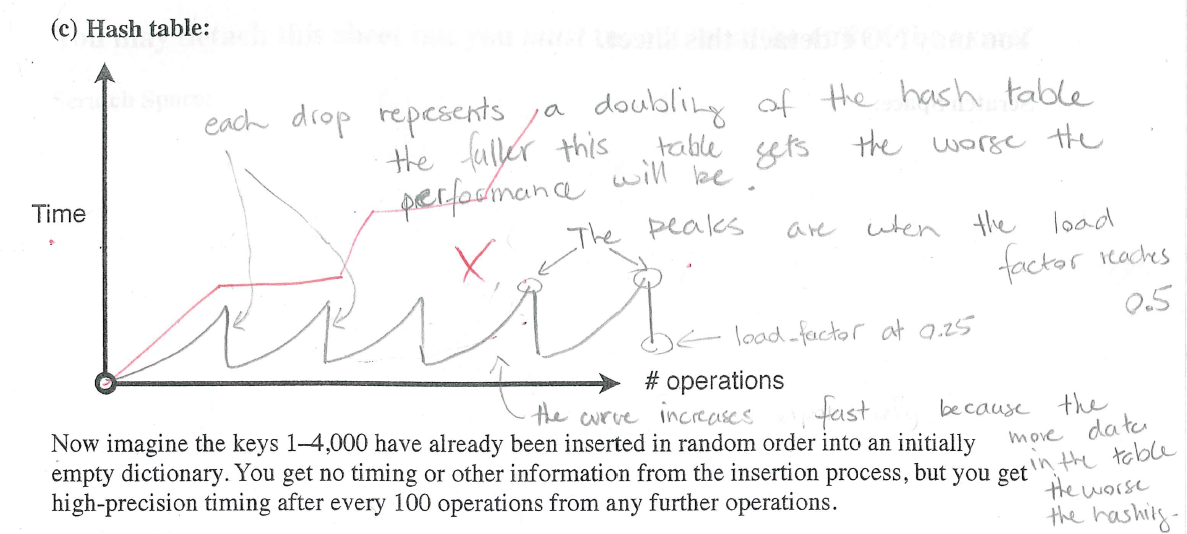 (c) Hash table:
each drop represents a doubling of the hash table
the fuller this table gets the worse the
performance will be.
Time
The peaks are when the load
factor reaches
0.5
X
load-factor at 0.25
# operations
the curve increases fast because the
more data
in the table
the worse
the hashing.
Now imagine the keys 1–4,000 have already been inserted in random order into an initially
empty dictionary. You get no timing or other information from the insertion process, but you get
high-precision timing after every 100 operations from any further operations.